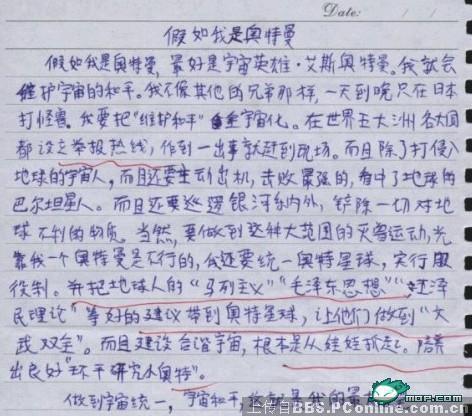 Date:
假如我是奥特曼
假如我是奥特曼，最好是宇宙英雄·艾斯奥特曼。我就会
维护宇宙的和平。我不像其他的兄弟那样，一天到晚只在日本
打怪兽。我要把"维护和平"全宇宙化。在世界五大洲各大国
都设立举报热线，作到一出事就赶到现场。而且除了打侵入
地球的宇宙人，而且还要主动出机，击败最强的，看中了地球的
巴尔坦星人。而且还要巡逻银河系内外，铲除一切对地
球不利的物质。当然，要做到这种大范围的灭害运动，光
靠我一个奥特曼是不行的，我还要统一奥特星球，实行服
役制。并把地球人的"马列主义""毛泽东思想""江泽
民理论"等好的建议带到奥特星球，让他们做到"文
武双全"。而且建设合谐宇宙，根本是从娃娃抓起。培养
出良好"环平研究小奥特"。
做到宇宙统一，宇宙和平，这就是我的最
上传自BBS.PConline.com.cn
MOP.com